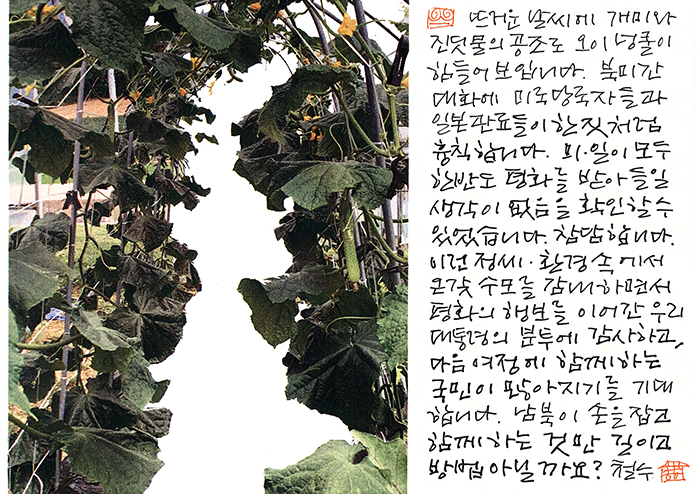 뜨거운 날씨에 개미와
진딧물의 공조로 오이 넝쿨이
힘들어 보입니다. 북미간
대화에 미국당국자들과
일본관료들이 한짓처럼
흉칙합니다. 미·일이 모두
한반도 평화를 받아들일
생각이 없음을 확인할수
있었습니다. 참담합니다.
이런 정세·환경속에서
온갖 수모를 감내하면서
평화의 행보를 이어간 우리
대통령의 분투에 감사하고,
다음 여정에 함께하는
국민이 많아지기를 기대
합니다. 남북이 손을잡고
함께하는 것만 길이고
방법 아닐까요? 철수